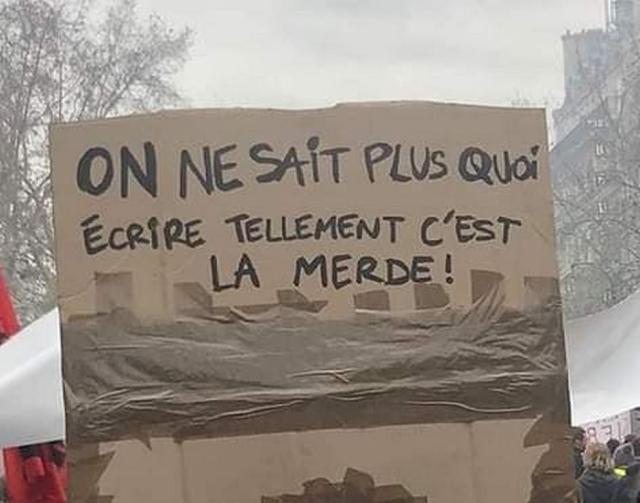 ON NE SAiT PLUS QUOi
ÉCRiRE TELLEMENT C'EST
LA MERDE !